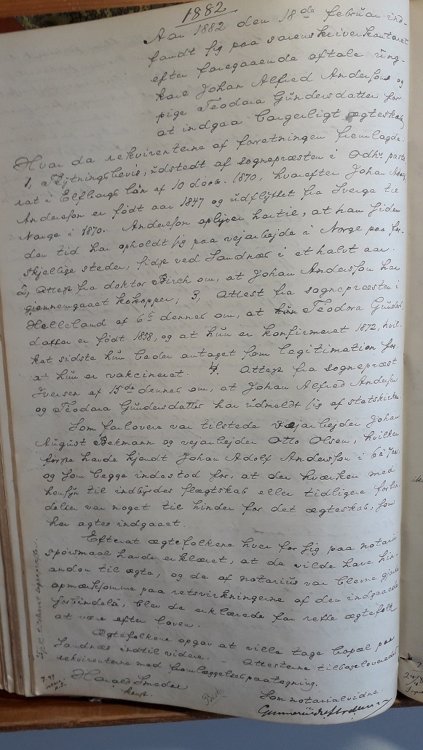 1882
Aar 1882 den 18de februar ind-
fandt sig paa sorenskriverkontoret
efter foregaaende aftale ung-
karl Johan Alfred Andersson og
pige Teodora Gundersdatter for
at indgaa borgerligt ægteskab.
Hvorda rekvirenterne af forretningen fremlagde:
1, Flytningsbevis, udstedt af sognepræsten i
i Elfsborgs län af 10 1870, hvorefter Johan
Andersson er født aar 1847 og udflyttet fra Sverige til
Norge i 1870. Andersson oplyser hertil, at han siden
den tid har opholdt sig paa vejarbejde i Norge paa for-
skjellige steder, sidst ved Sandnæs i et halvt aar.
2, Attest fra doktor Birch om, at Johan Andersson har
gjennemgaaet kopper; 3, Attest fra sognepræsten i
Helleland af 6te dennes om, at Teodora Gunders-
datter er født 1858, og at hun er konfirmeret 1872, hvil-
ket sidste hun beder antaget som legitimation for
at hun er vakcineret. 4, Attest fra sognepræst
Iversen af 15de dennes om, at Johan Alfred Andersson
og Teodora Gundersdatter har udmeldt sig af statskirken
Som forlovere var tilstede vejarbejder Johan
August Bekmann og vejarbejder Otto Olsen, hvilken
første havde kjendt Johan Adolf Andersson i
og som begge indestod for, at der hverken med
hensyn til indbyrdes slægtskab eller tidligere forlo-
velser var noget til hinder for det ægteskab, som
her agtes indgaaet.
Efterat ægtefolkene hver for sig paa notarii
spørsmaal havde erklæret, at de vilde have hin-
anden til ægte, og de af notarius var blevne gjorte
opmærksomme paa retsvirkningerne af den indgaaede
forbindelse, blev de erklærede for rette ægtefolk
at være efter loven.
Ægtefolkene opgav at ville tage bopæl paa
Sandnæs indtil videre. Attesterne tilbageleveredes
rekvirenterne med fremlæggelsespaategning.
Harald Smedal
Som notarialvidne